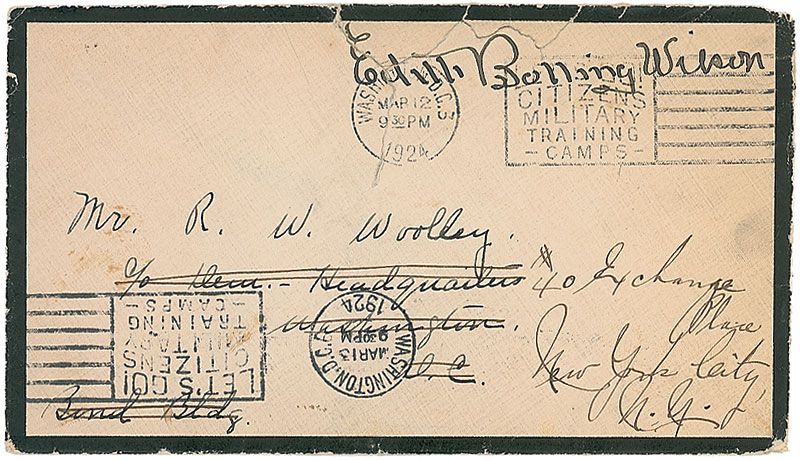 Edith Bolling Wilson
WASH D.C. 3
MAR 12
9 30 PM
1924
CITIZENS
MILITARY
TRAINING
- CAMPS -
Mr. R. W. Woolley.
c/o Dem. - Headquarters
Washington.
D.C.
Bond Bldg.
40 Exchange
Place
New York City,
N.Y.
LET'S GO!
CITIZENS
MILITARY
TRAINING
- CAMPS -
WASHINGTON, D.C.
MAR 13
9 30 PM
1924